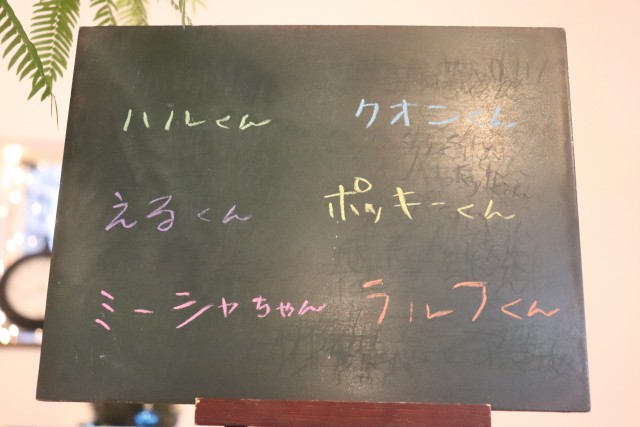 ハルくん クオンくん
えるくん ポッキーくん
ミーシャちゃん ラルフくん